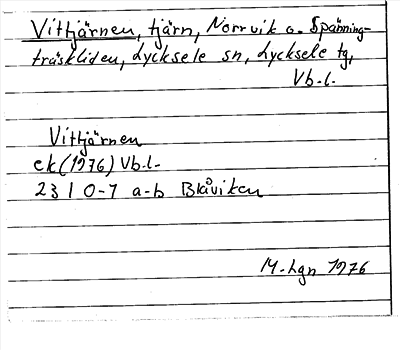 Vittjärnen, tjärn, Norrvik o. Spänning-
träskliden, Lycksele sn, Lycksele tg,
Vb.l.
Vittjärnen
ek (1976) Vb.l.
23 I 0-1 a-b Blåviken
M. Lgn 1976